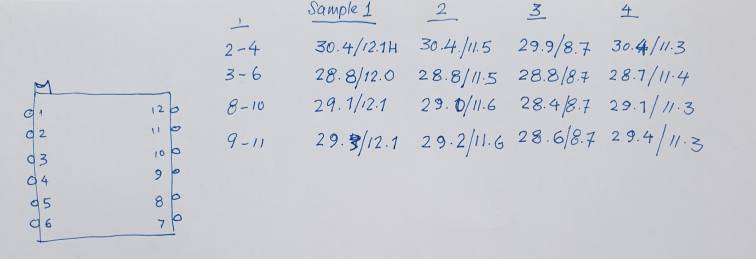 1 Sample 1 2 3 4
2-4 30.4/12.1H 30.4/11.5 29.9/8.7 30.4/11.3
3-6 28.8/12.0 28.8/11.5 28.8/8.7 28.7/11.4
8-10 29.1/12.1 29.0/11.6 28.4/8.7 29.1/11.3
9-11 29.3/12.1 29.2/11.6 28.6/8.7 29.4/11.3
1 12
2 11
3 10
4 9
5 8
6 7